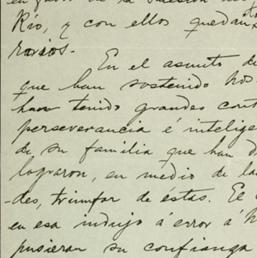 Río, y con ellos quedan
rarios.
En el asunto de
que han sostenido los
han tenido grandes cont
perseverancia é intelige
de su familia que han d
lograron, en medio de la
des, triumfar de éstas. El
en esa indujo á error a
pusieran su confianza